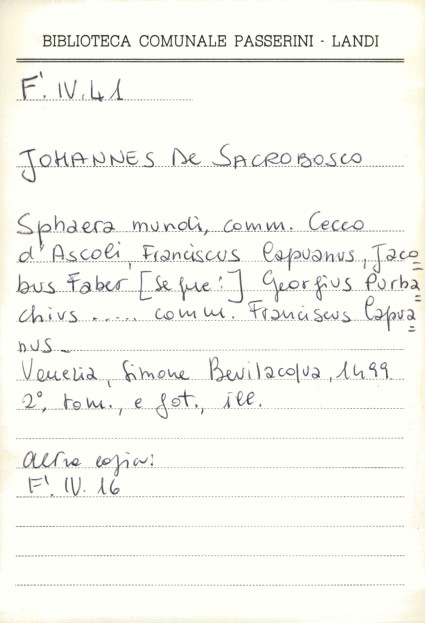 BIBLIOTECA COMUNALE PASSERINI - LANDI
F'. IV. 41
JOHANNES De SACROBOSCO
Sphaera mundi, comm. Cecco
d'Ascoli, Franciscus Capuanus, Jaco=
bus Faber [segue:] Georgius Purba=
chius ..... comm. Franciscus Capua=
nus_
Venezia, Simone Bevilacqua, 1499
2°, rom., e got., ill.
altra copia:
F'. IV. 16